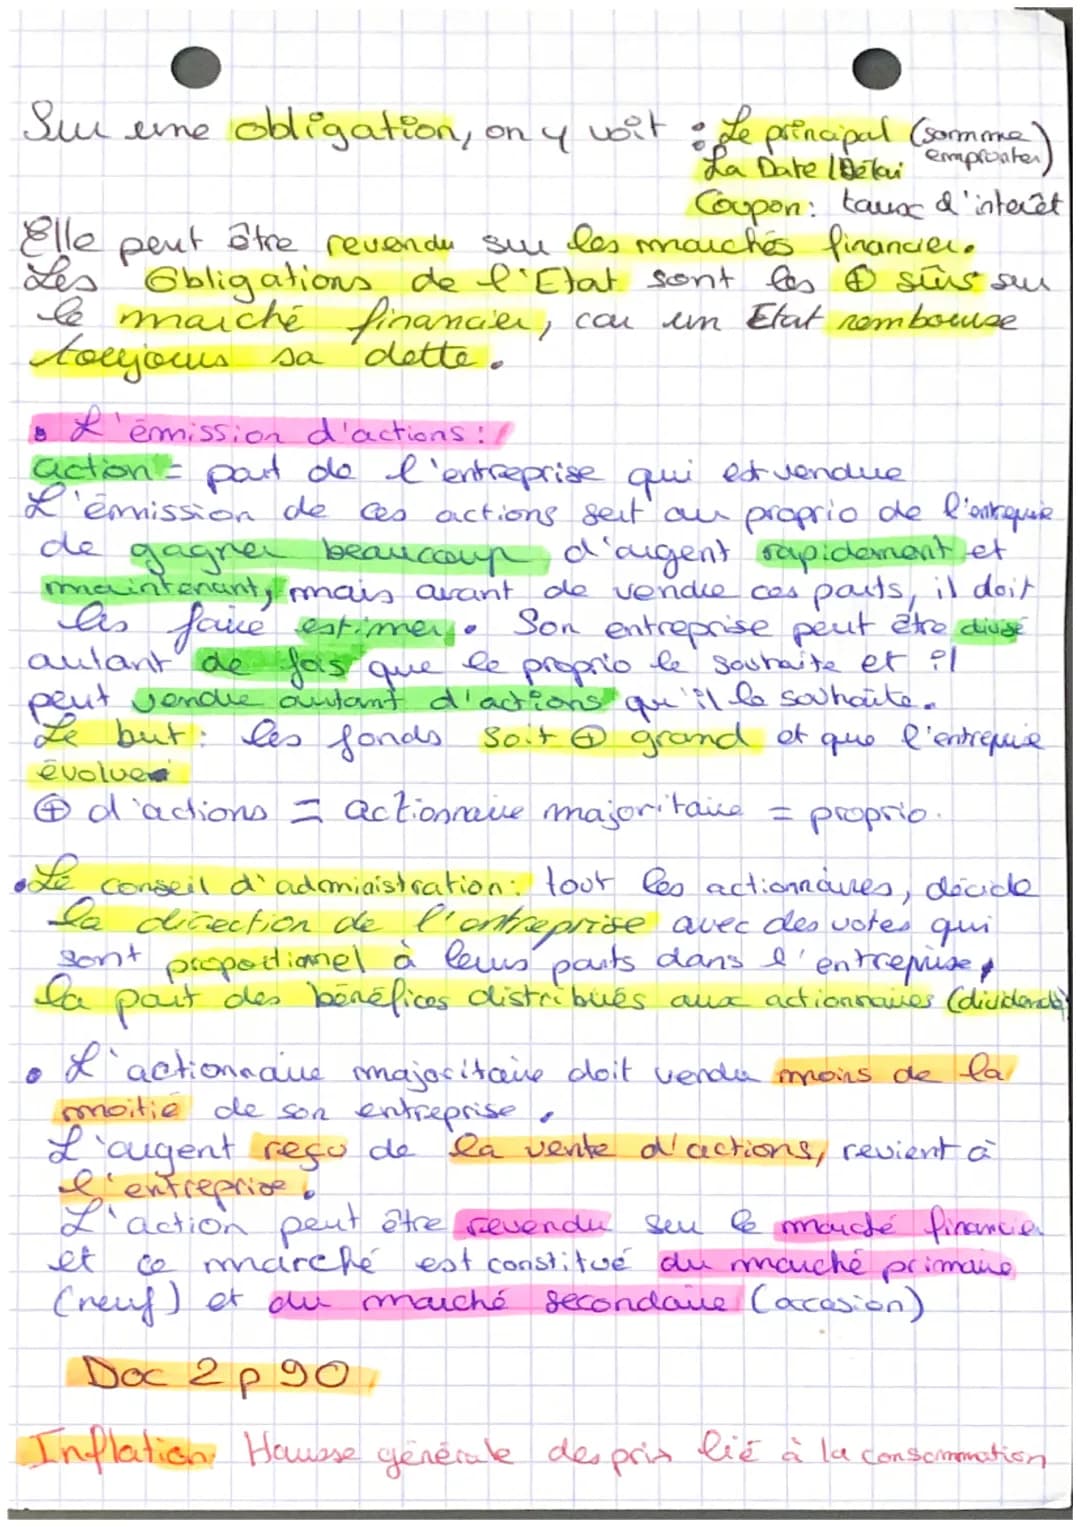 Sur une obligation, on y voit : Le principal (somme emprunter)
La Date / Délai
Coupon: taux d'interêt
Elle peut être revendu sur les marchés financier.
Les Obligations de l'Etat sont les ⊕ sûrs sur
le marché financier, car un Etat rembourse
toujours sa dette.
• L'émission d'actions :
action = part de l'entreprise qui est vendue
L'émission de ces actions sert au proprio de l'entreprise
de gagner beaucoup d'argent rapidement et
maintenant, mais avant de vendre ces parts, il doit
les faire estimer. Son entreprise peut être divisé
autant de fois que le proprio le souhaite et il
peut vendre autant d'actions qu'il le souhaite.
Le but : les fonds soit ⊕ grand et que l'entreprise
évolue
⊕ d'actions = actionnaire majoritaire = proprio.
• Le conseil d'administration : tout les actionnaires, décide
la direction de l'entreprise avec des votes qui
sont proportionnel à leurs parts dans l'entreprise,
la part des bénéfices distribués aux actionnaires (dividende)
• L'actionnaire majoritaire doit vendre moins de la
moitié de son entreprise.
L'argent reçu de la vente d'actions, revient à
l'entreprise.
L'action peut être revendu sur le marché financier
et ce marché est constitué du marché primaire
(neuf) et du marché secondaire (occasion)
Doc 2 p 90
Inflation Hausse générale des prix lié à la consommation